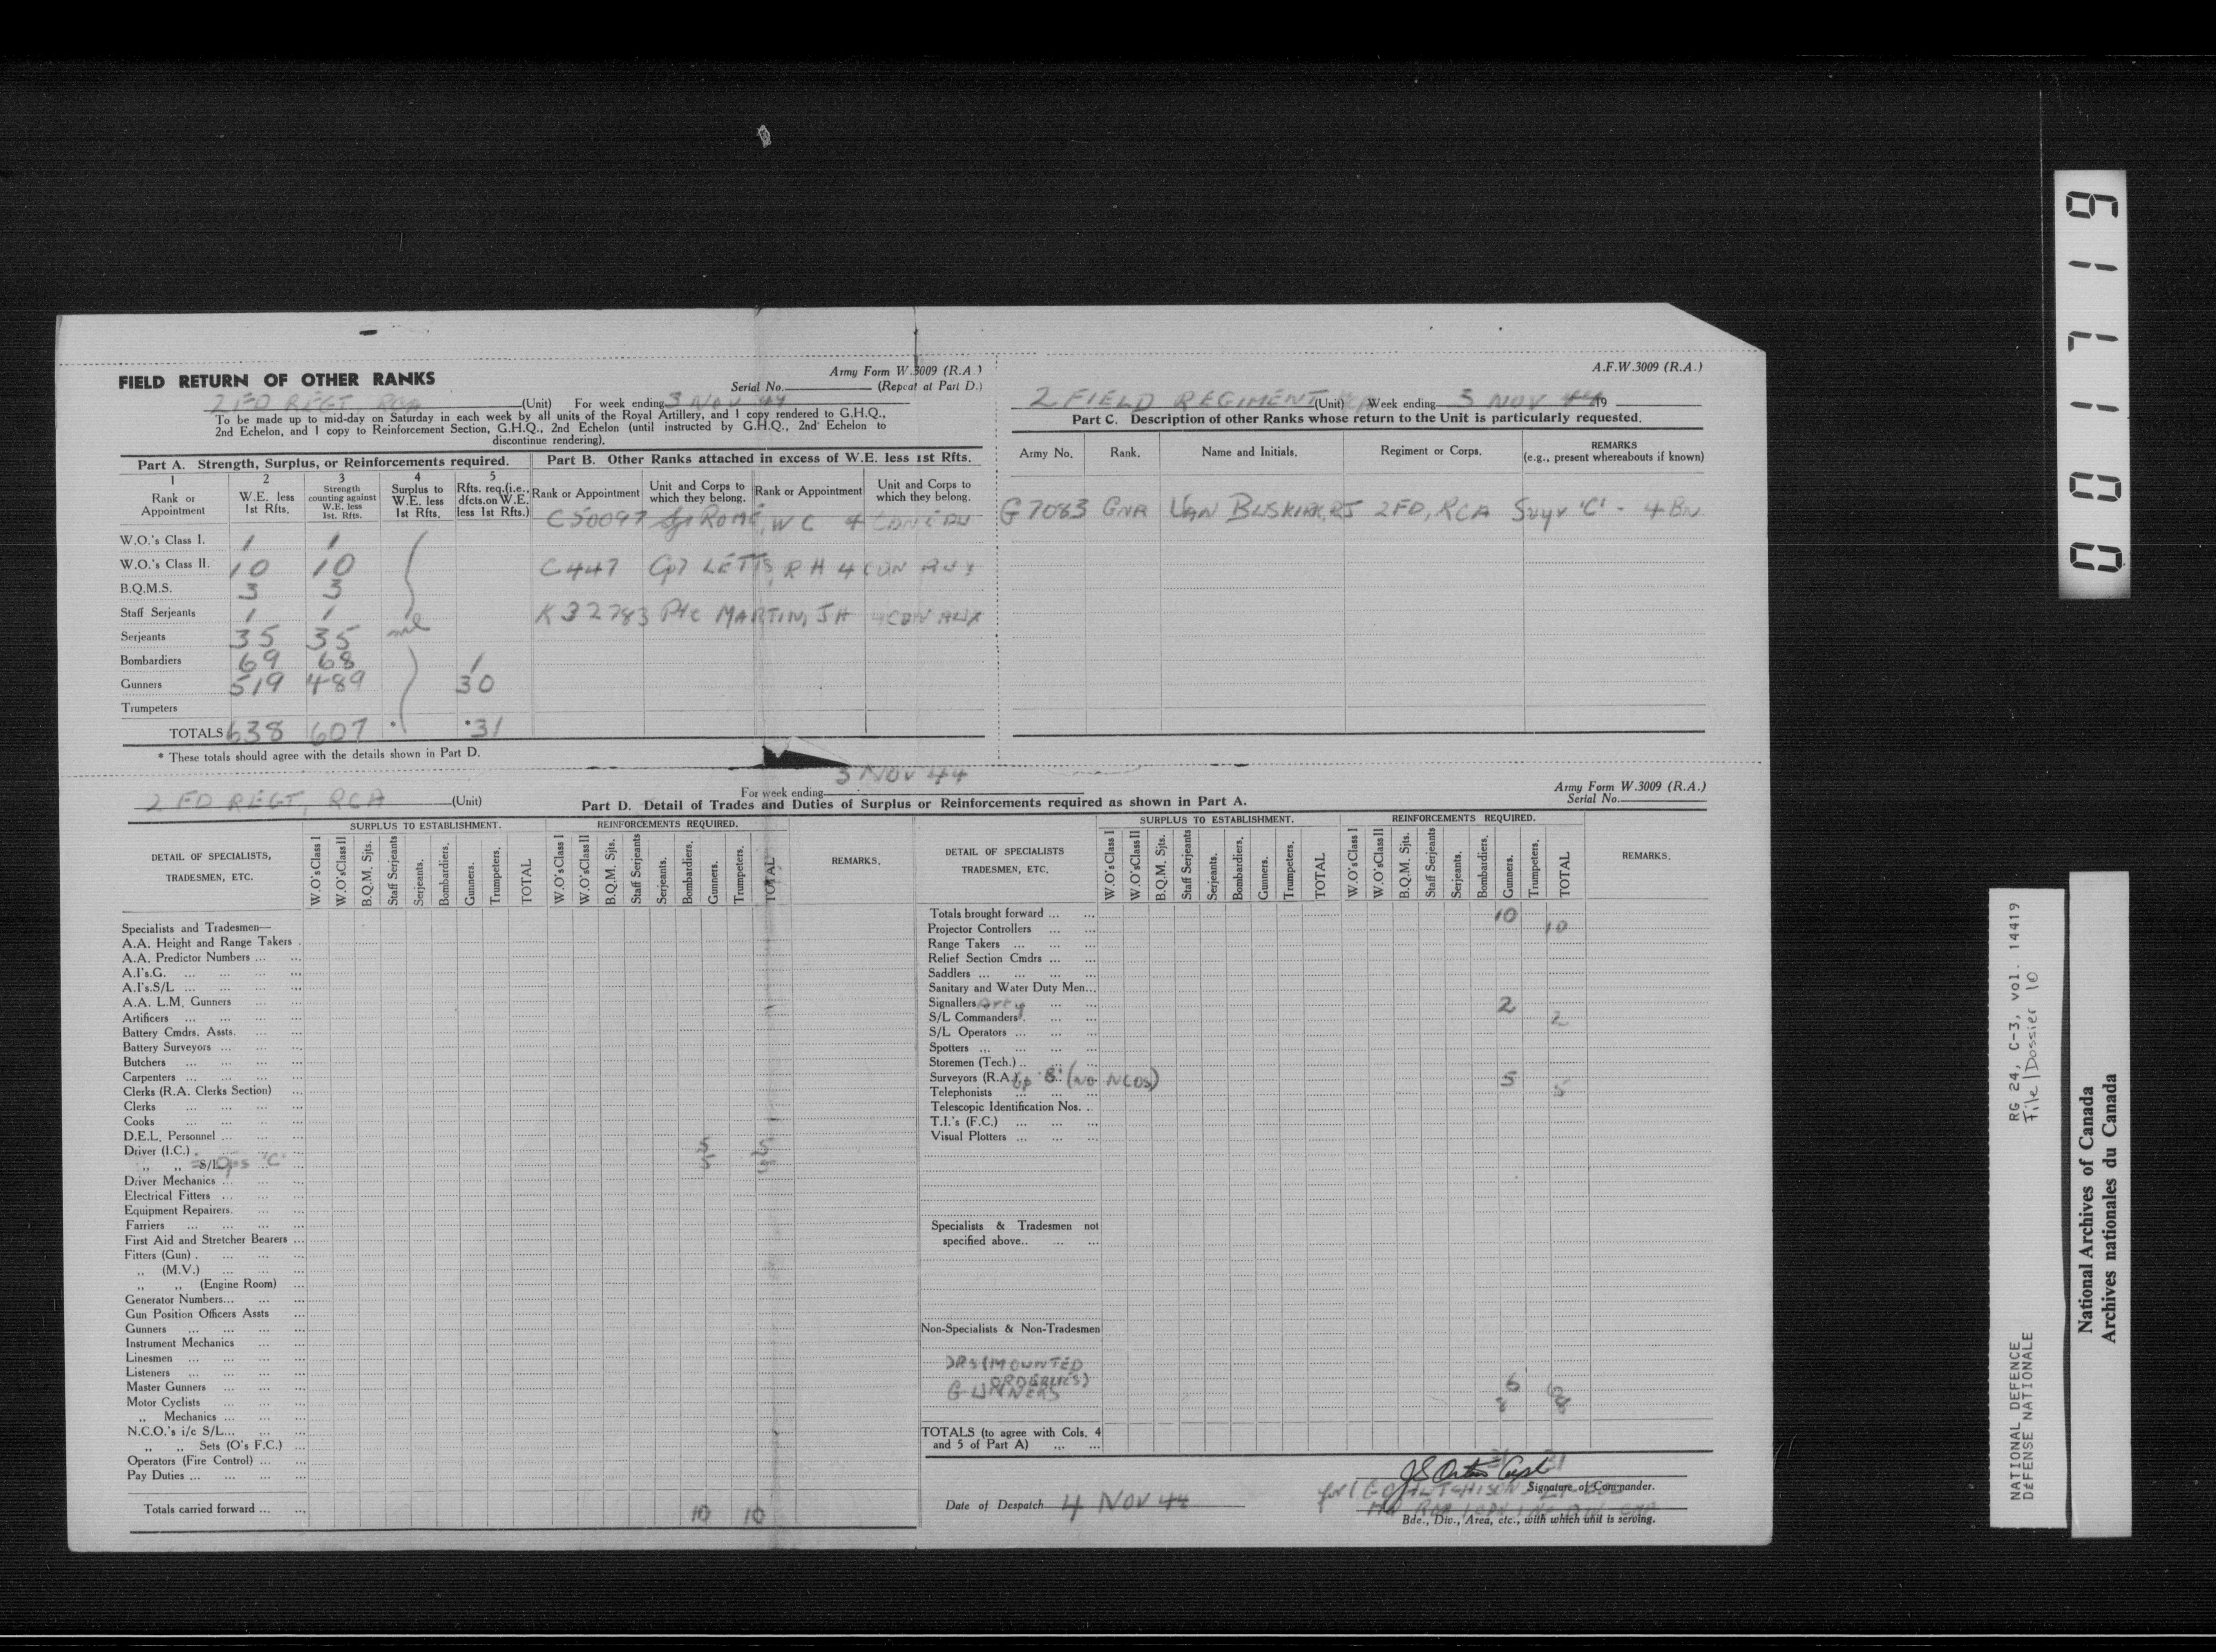 FIELD RETURN OF OTHER RANKS
Army Form W.3009 (R.A.)
Serial No. (Repeat at Part D.)
2 FD REGT RCA (Unit) For week ending 3 NOV 44
To be made up to mid-day on Saturday in each week by all units of the Royal Artillery, and 1 copy rendered to G.H.Q.,
2nd Echelon, and 1 copy to Reinforcement Section, G.H.Q., 2nd Echelon (until instructed by G.H.Q., 2nd Echelon to
discontinue rendering).
Part A. Strength, Surplus, or Reinforcements required.
1 2 3 4 5
Rank or Appointment
W.E. less 1st Rfts.
Strength counting against W.E. less 1st. Rfts.
Surplus to W.E. less 1st Rfts.
Rfts. req.(i.e., dfcts.on W.E. less 1st Rfts.)
W.O.'s Class I. 1 1
W.O.'s Class II. 10 10
B.Q.M.S. 3 3
Staff Serjeants 1 1
Serjeants 35 35 nil
Bombardiers 69 68 1
Gunners 519 489 30
Trumpeters
TOTALS 638 607 * *31
* These totals should agree with the details shown in Part D.
Part B. Other Ranks attached in excess of W.E. less 1st Rfts.
Rank or Appointment
Unit and Corps to which they belong.
Rank or Appointment
Unit and Corps to which they belong.
C50097 Sgt ROME, W C 4
C447 Cpl LETTS, R H 4 CDN AUX
K32783 Pte MARTIN, JH 4 CDN AUX
A.F.W.3009 (R.A.)
2 FIELD REGIMENT (Unit) Week ending 3 NOV 44 19
Part C. Description of other Ranks whose return to the Unit is particularly requested.
Army No. Rank. Name and Initials. Regiment or Corps. REMARKS
(e.g., present whereabouts if known)
G7083 GNR VAN BUSKIRK, RJ 2 FD, RCA Suyr 'C' - 4 BN
3 NOV 44
2 FD REGT, RCA (Unit)
For week ending
Army Form W.3009 (R.A.)
Serial No.
Part D. Detail of Trades and Duties of Surplus or Reinforcements required as shown in Part A.
DETAIL OF SPECIALISTS, TRADESMEN, ETC.
SURPLUS TO ESTABLISHMENT.
W.O's Class I W.O's Class II B.Q.M. Sjts. Staff Serjeants Serjeants. Bombardiers. Gunners. Trumpeters. TOTAL
REINFORCEMENTS REQUIRED.
W.O's Class I W.O's Class II B.Q.M. Sjts. Staff Serjeants Serjeants. Bombardiers. Gunners. Trumpeters. TOTAL
REMARKS.
Specialists and Tradesmen—
A.A. Height and Range Takers .
A.A. Predictor Numbers ... ...
A.I's.G. ... ... ... ...
A.I's.S/L ... ... ... ...
A.A. L.M. Gunners ... ...
Artificers ... ... ... ...
Battery Cmdrs. Assts. ... ...
Battery Surveyors ... ... ...
Butchers ... ... ... ...
Carpenters ... ... ... ...
Clerks (R.A. Clerks Section) ...
Clerks ... ... ... ...
Cooks ... ... ... ...
D.E.L. Personnel ... ... ...
Driver (I.C.) . 5 5
,, ,, S/L Ops 'C' ... 5 5
Driver Mechanics ... ... ...
Electrical Fitters ... ... ...
Equipment Repairers. ... ...
Farriers ... ... ... ...
First Aid and Stretcher Bearers ...
Fitters (Gun) . ... ... ...
,, (M.V.) ... ... ...
,, ,, (Engine Room) ...
Generator Numbers... ... ...
Gun Position Officers Assts ...
Gunners ... ... ... ...
Instrument Mechanics ... ...
Linesmen ... ... ... ...
Listeners ... ... ... ...
Master Gunners ... ... ...
Motor Cyclists ... ... ...
,, Mechanics ... ... ...
N.C.O.'s i/c S/L... ... ...
,, ,, Sets (O's F.C.) ...
Operators (Fire Control) ... ...
Pay Duties ... ... ... ...
Totals carried forward ... ... 10 10
DETAIL OF SPECIALISTS TRADESMEN, ETC.
SURPLUS TO ESTABLISHMENT.
W.O's Class I W.O's Class II B.Q.M. Sjts. Staff Serjeants Serjeants. Bombardiers. Gunners. Trumpeters. TOTAL
REINFORCEMENTS REQUIRED.
W.O's Class I W.O's Class II B.Q.M. Sjts. Staff Serjeants Serjeants. Bombardiers. Gunners. Trumpeters. TOTAL
REMARKS.
Totals brought forward ... ... 10 10
Projector Controllers ... ...
Range Takers ... ... ...
Relief Section Cmdrs ... ...
Saddlers ... ... ... ...
Sanitary and Water Duty Men...
Signallers Arty ... ... 2 2
S/L Commanders . ... ...
S/L Operators ... ... ...
Spotters ... ... ... ...
Storemen (Tech.) .. ... ...
Surveyors (R.A.) Gp 'B' (NO NCOS) 5 5
Telephonists ... ... ...
Telescopic Identification Nos. ..
T.I.'s (F.C.) ... ... ...
Visual Plotters ... ... ...
Specialists & Tradesmen not
specified above.. ... ...
Non-Specialists & Non-Tradesmen
DRS (MOUNTED
ORDERLIES) 6 6
GUNNERS 8 8
TOTALS (to agree with Cols. 4
and 5 of Part A) ... ... 31 31
Capt
for (G HUTCHISON)
Signature of Commander.
Date of Despatch 4 NOV 44
Bde., Div., Area, etc., with which unit is serving.
001719
RG 24, C-3, vol. 14419
File/Dossier 10
NATIONAL DEFENCE
DÉFENSE NATIONALE
National Archives of Canada
Archives nationales du Canada